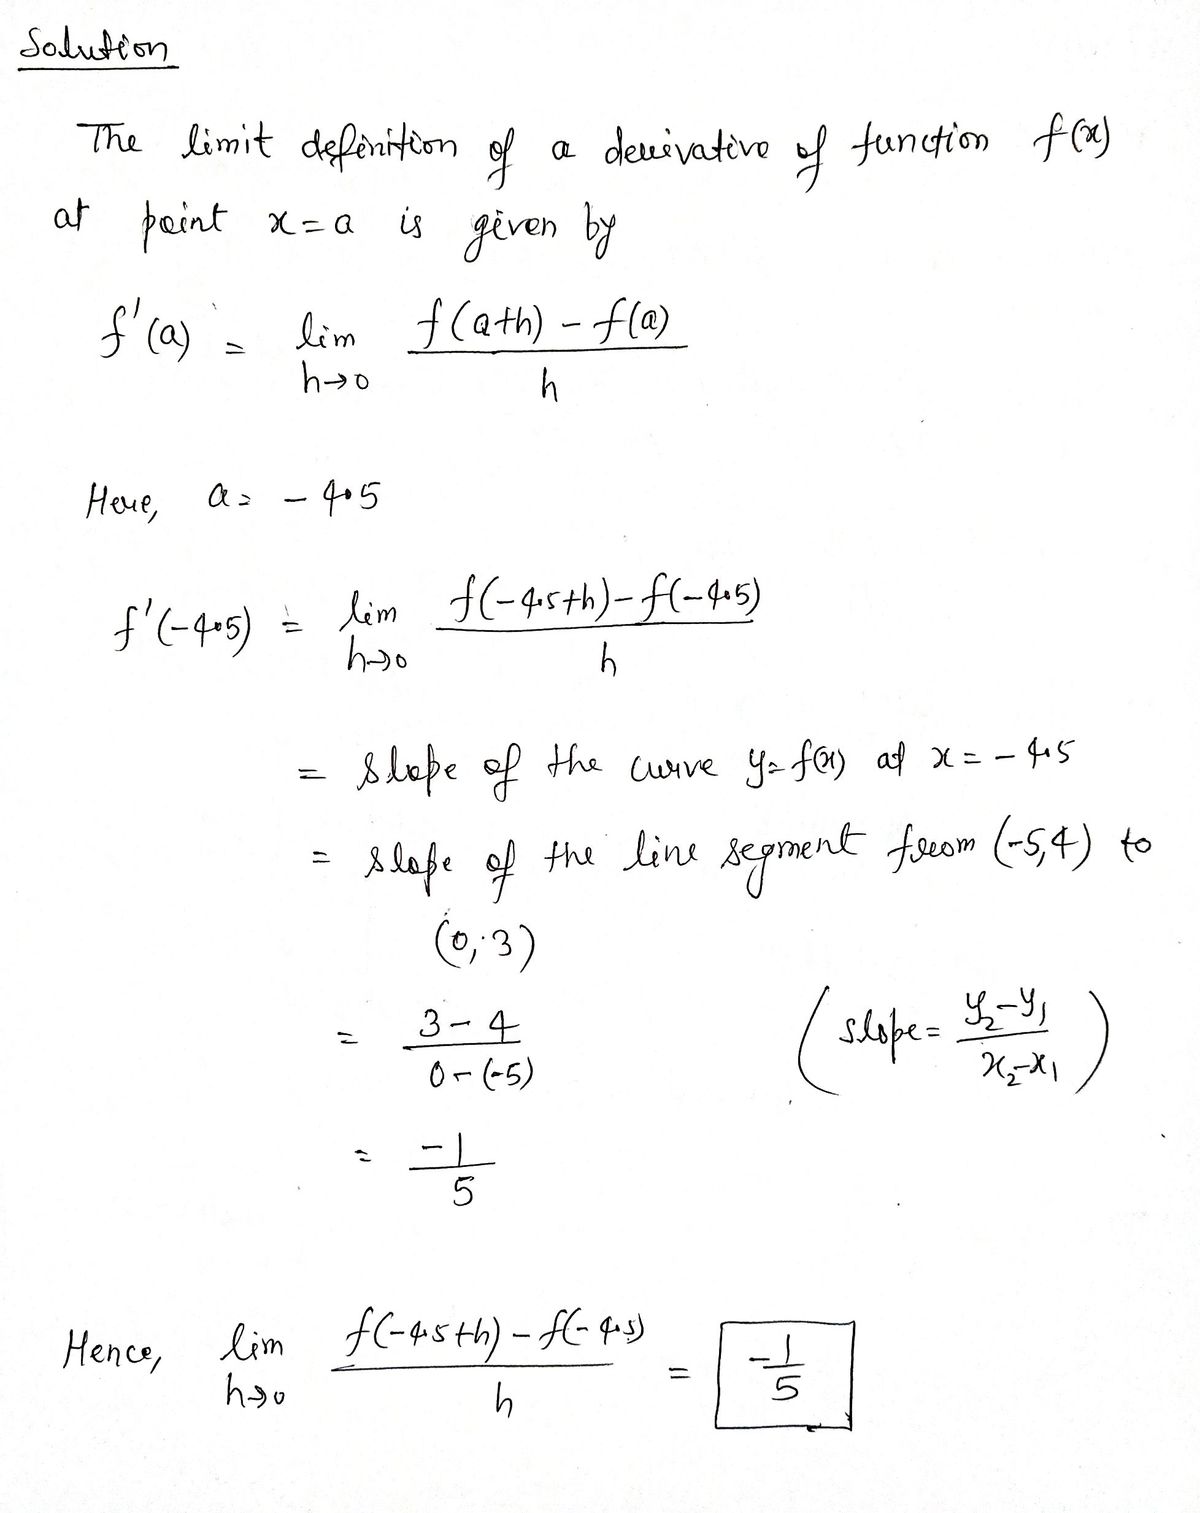 Solution
The limit definition of a derivative of function f(x)
at point x = a is given by
f'(a) = lim h→0 (f(a+h) - f(a))/h
Here, a = -4.5
f'(-4.5) = lim h→0 (f(-4.5+h) - f(-4.5))/h
= slope of the curve y = f(x) at x = -4.5
= slope of the line segment from (-5,4) to
(0, 3)
= (3 - 4)/(0 - (-5)) (slope = (y₂-y₁)/(x₂-x₁))
= -1/5
Hence, lim h→0 (f(-4.5+h) - f(-4.5))/h = -1/5